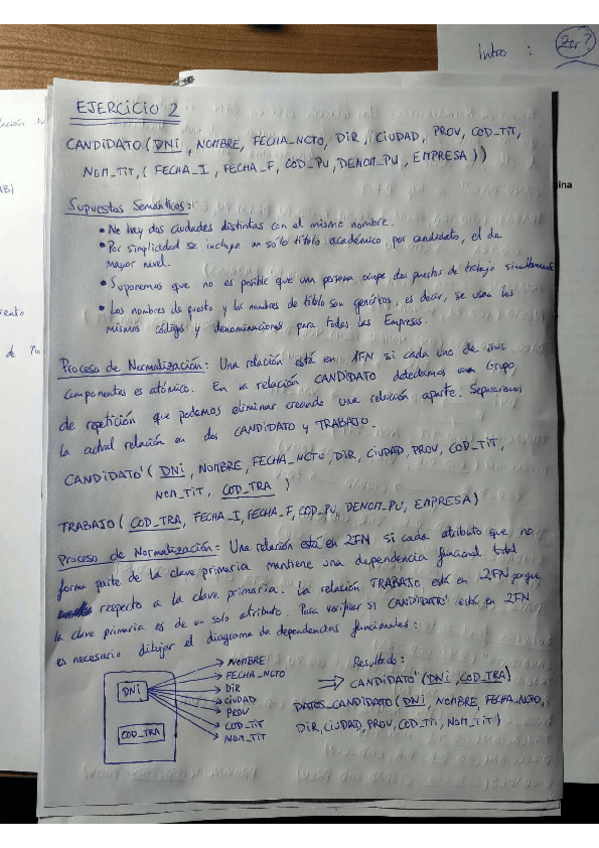 Intro : Zer?
EJERCICIO 2
CANDIDATO (DNI, NOMBRE, FECHA_NCTO, DIR, CIUDAD, PROV, COD_TIT,
NOM_TIT, ( FECHA_I, FECHA_F, COD_PU, DENOM_PU, EMPRESA ))
Supuestos Semánticos:
• No hay dos ciudades distintas con el mismo nombre.
• Por simplicidad se incluye un sólo título académico por candidato, el de
mayor nivel.
• Suponemos que no es posible que una persona ocupe dos puestos de trabajo simultáneamente
• Los nombres de puesto y los nombres de título son genéricos, es decir, se usan los
mismos códigos y denominaciones para todas las Empresas.
Proceso de Normalización: Una relación está en 1FN si cada uno de sus
componentes es atómico. En la relación CANDIDATO detectamos un Grupo
de repetición que podemos eliminar creando una relación aparte. Separaremos
la actual relación en dos CANDIDATO y TRABAJO.
CANDIDATO' ( DNI, NOMBRE, FECHA_NCTO, DIR, CIUDAD, PROV, COD_TIT,
NOM_TIT, COD_TRA )
TRABAJO ( COD_TRA, FECHA_I, FECHA_F, COD_PU, DENOM_PU, EMPRESA)
Proceso de Normalización: Una relación está en 2FN si cada atributo que no
forma parte de la clave primaria mantiene una dependencia funcional total
respecto a la clave primaria. La relación TRABAJO está en 2FN porque
la clave primaria es de un solo atributo. Para verificar si CANDIDATO' está en 2FN
es necesario dibujar el diagrama de dependencias funcionales:
DNI
COD_TRA
NOMBRE
FECHA_NCTO
DIR
CIUDAD
PROV
COD_TIT
NOM_TIT
Resultado:
⇒ CANDIDATO' (DNI, COD_TRA)
DATOS_CANDIDATO (DNI, NOMBRE, FECHA_NCTO,
DIR, CIUDAD, PROV, COD_TIT, NOM_TIT)
ina